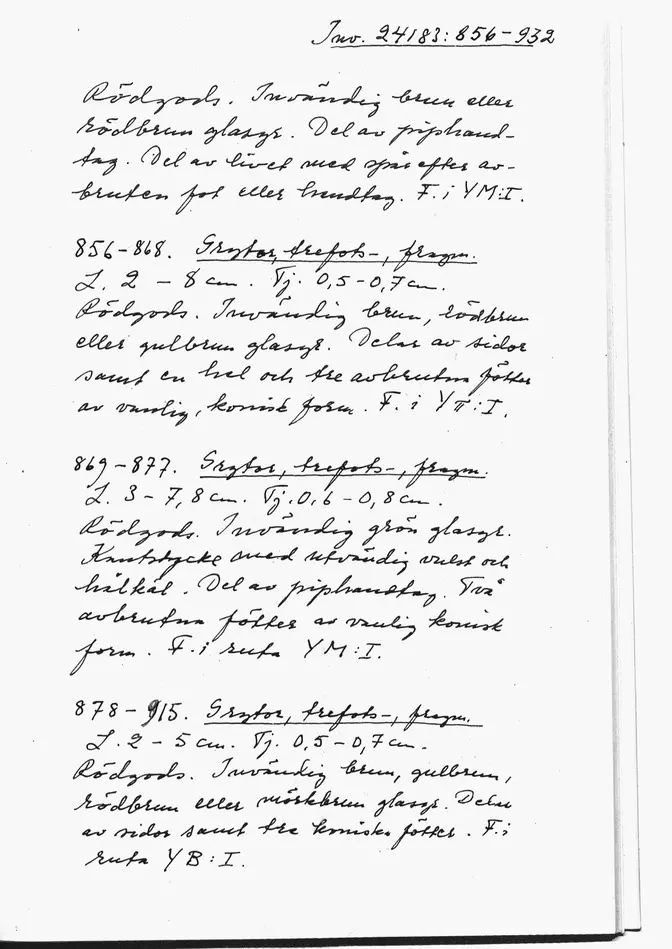 Inv. 24183:856-932
Rödgods. Invändig brun eller
rödbrun glasyr. Del av piphand-
tag. Del av livet med spår efter av-
bruten fot eller handtag. F. i YM:I.
856-868. Grytor, trefots-, fragm.
L. 2 - 8 cm. Tj. 0,5-0,7 cm.
Rödgods. Invändig brun, rödbrun
eller gulbrun glasyr. Delar av sidor
samt en hel och tre avbrutna fötter
av vanlig, konisk form. F. i Y :I.
869-877. Grytor, trefots-, fragm.
L. 3 - 7,8 cm. Tj. 0,6 - 0,8 cm.
Rödgods. Invändig grön glasyr.
Kantstycke med utvändig vulst och
hålkäl. Del av piphandtag. Två
avbrutna fötter av vanlig konisk
form. F. i ruta YM:I.
878-915. Grytor, trefots-, fragm.
L. 2 - 5 cm. Tj. 0,5-0,7 cm.
Rödgods. Invändig brun, gulbrun,
rödbrun eller mörkbrun glasyr. Delar
av sidor samt tre koniska fötter. F. i
ruta YB:I.